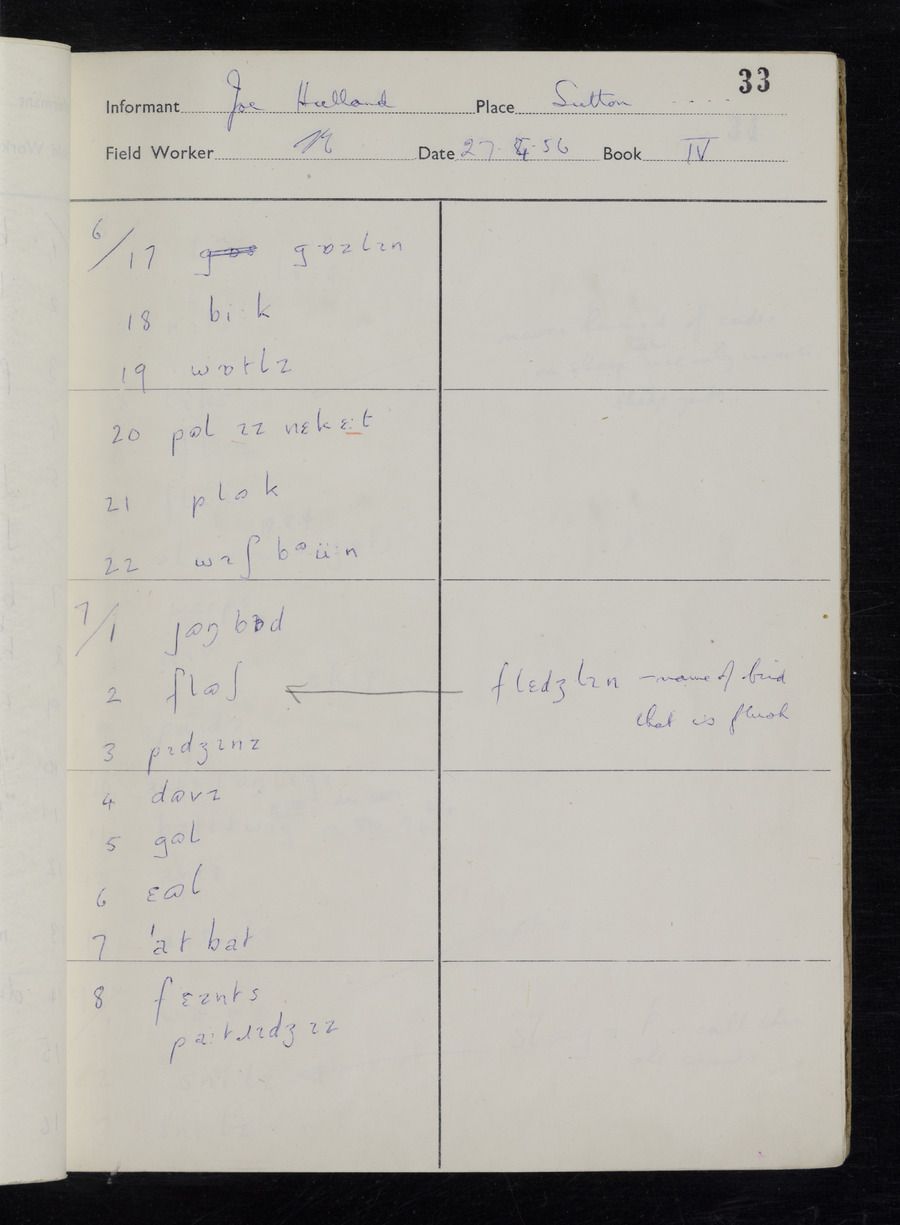 33
Informant Joe Hulland Place Sutton
Field Worker Date 27.4.56 Book IV
6/17 gɒzlɪn
18 bi·k
19 wɒtlz
20 pɷl ɪz nɛk ɛ:t
21 plɷk
22 wɪʃbɷü:n
7/1 jɷŋ bɜd
2 flɷʃ ← flɛdʒlɪn – name of bird
that is flush
3 pɪdʒɪnz
4 dɷvz
5 gɷl
6 ɛɷl
7 'at bat
8 fɛznts
pa:tɹɪdʒɪz